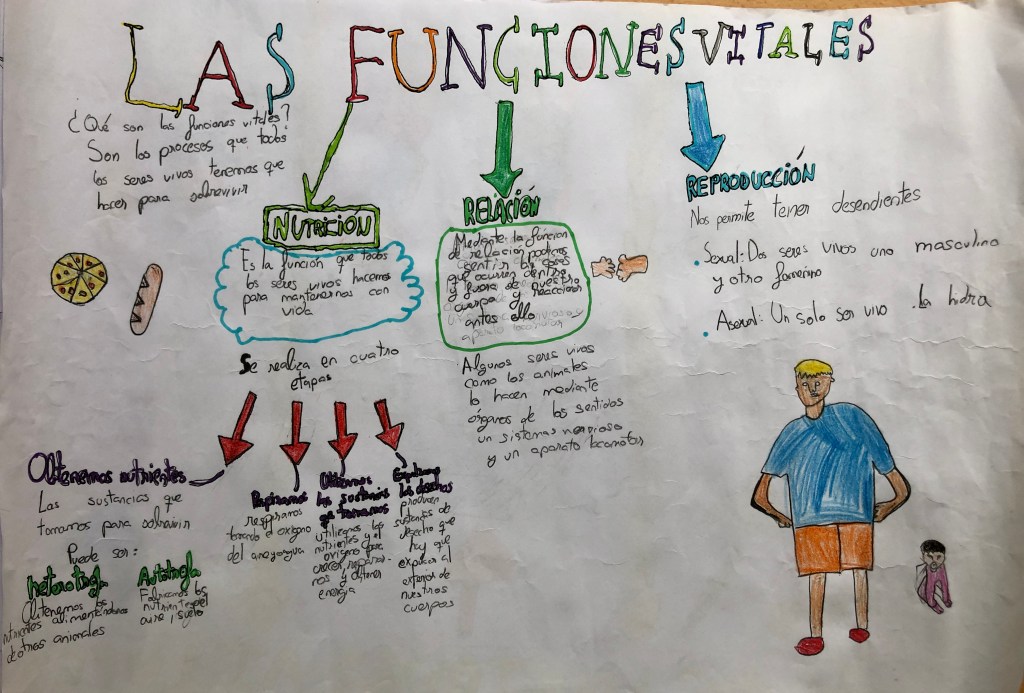 LAS FUNCIONES VITALES
¿Qué son las funciones vitales?
Son los procesos que todos
los seres vivos tenemos que
hacer para sobrevivir
NUTRICIÓN
Es la función que todos
los seres vivos hacemos
para mantenernos con
vida
Se realiza en cuatro
etapas
Obtenemos nutrientes
Las sustancias que
tomamos para sobrevivir
Puede ser:
heterotrofa
Obtenemos los
nutrientes alimentandonos
de otros animales
Autotrofa
Fabricamos los
nutrientes del
aire, suelo
Respiramos
respiramos
tomando el oxigeno
del aire y agua
Obtenemos
las sustancias
que tomamos
utilizamos los
nutrientes y el
oxigeno para
crecer, reparar
nos y obtener
energia
Expulsamos
los desechos
producen
sustancias de
desecho que
hay que
expulsar al
exterior de
nuestros
cuerpos
RELACIÓN
Mediante la funcion
de relacion podemos
sentir las cosas
que ocurren dentro
y fuera de nuestro
cuerpo y reaccionar
antes ello
Algunos seres vivos
como los animales
lo hacen mediante
órganos de los sentidos
un sistemas nervioso
y un aparato locomotor
REPRODUCCIÓN
Nos permite tener desendientes
• Sexual: Dos seres vivos uno masculino
y otro femenino
• Asexual: Un solo ser vivo . La hidra